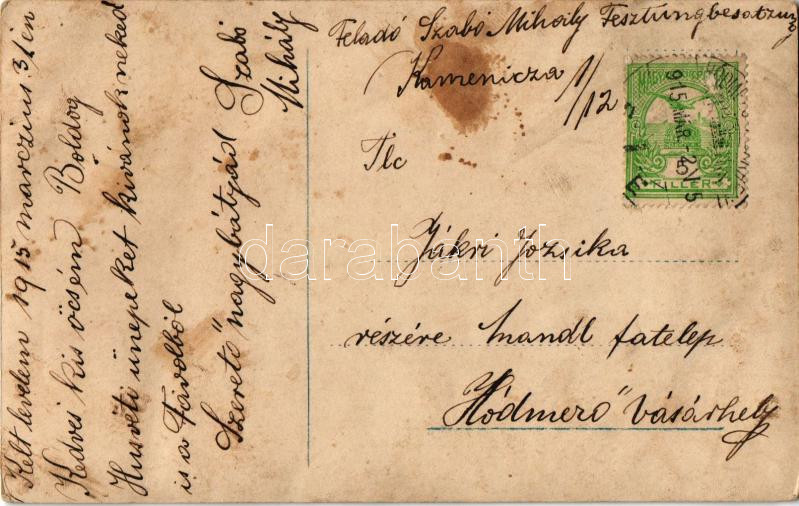 Kelt levelem 1915 marczius 31 én
Kedves kis öcsém Boldog
Husvéti ünnepeket kivánok neked
is a Távolból
Szerető nagybátyád Szabó
Mihály
Feladó Szabó Mihály Festungbesatzung
Kamenicza 1/12
Tlc
Jákri Jozsika
részére Mandl fatelep
Hódmező"vásárhely
MAGYAR KIR. POSTA
915 MÁR.
5
FILLER
darabanth